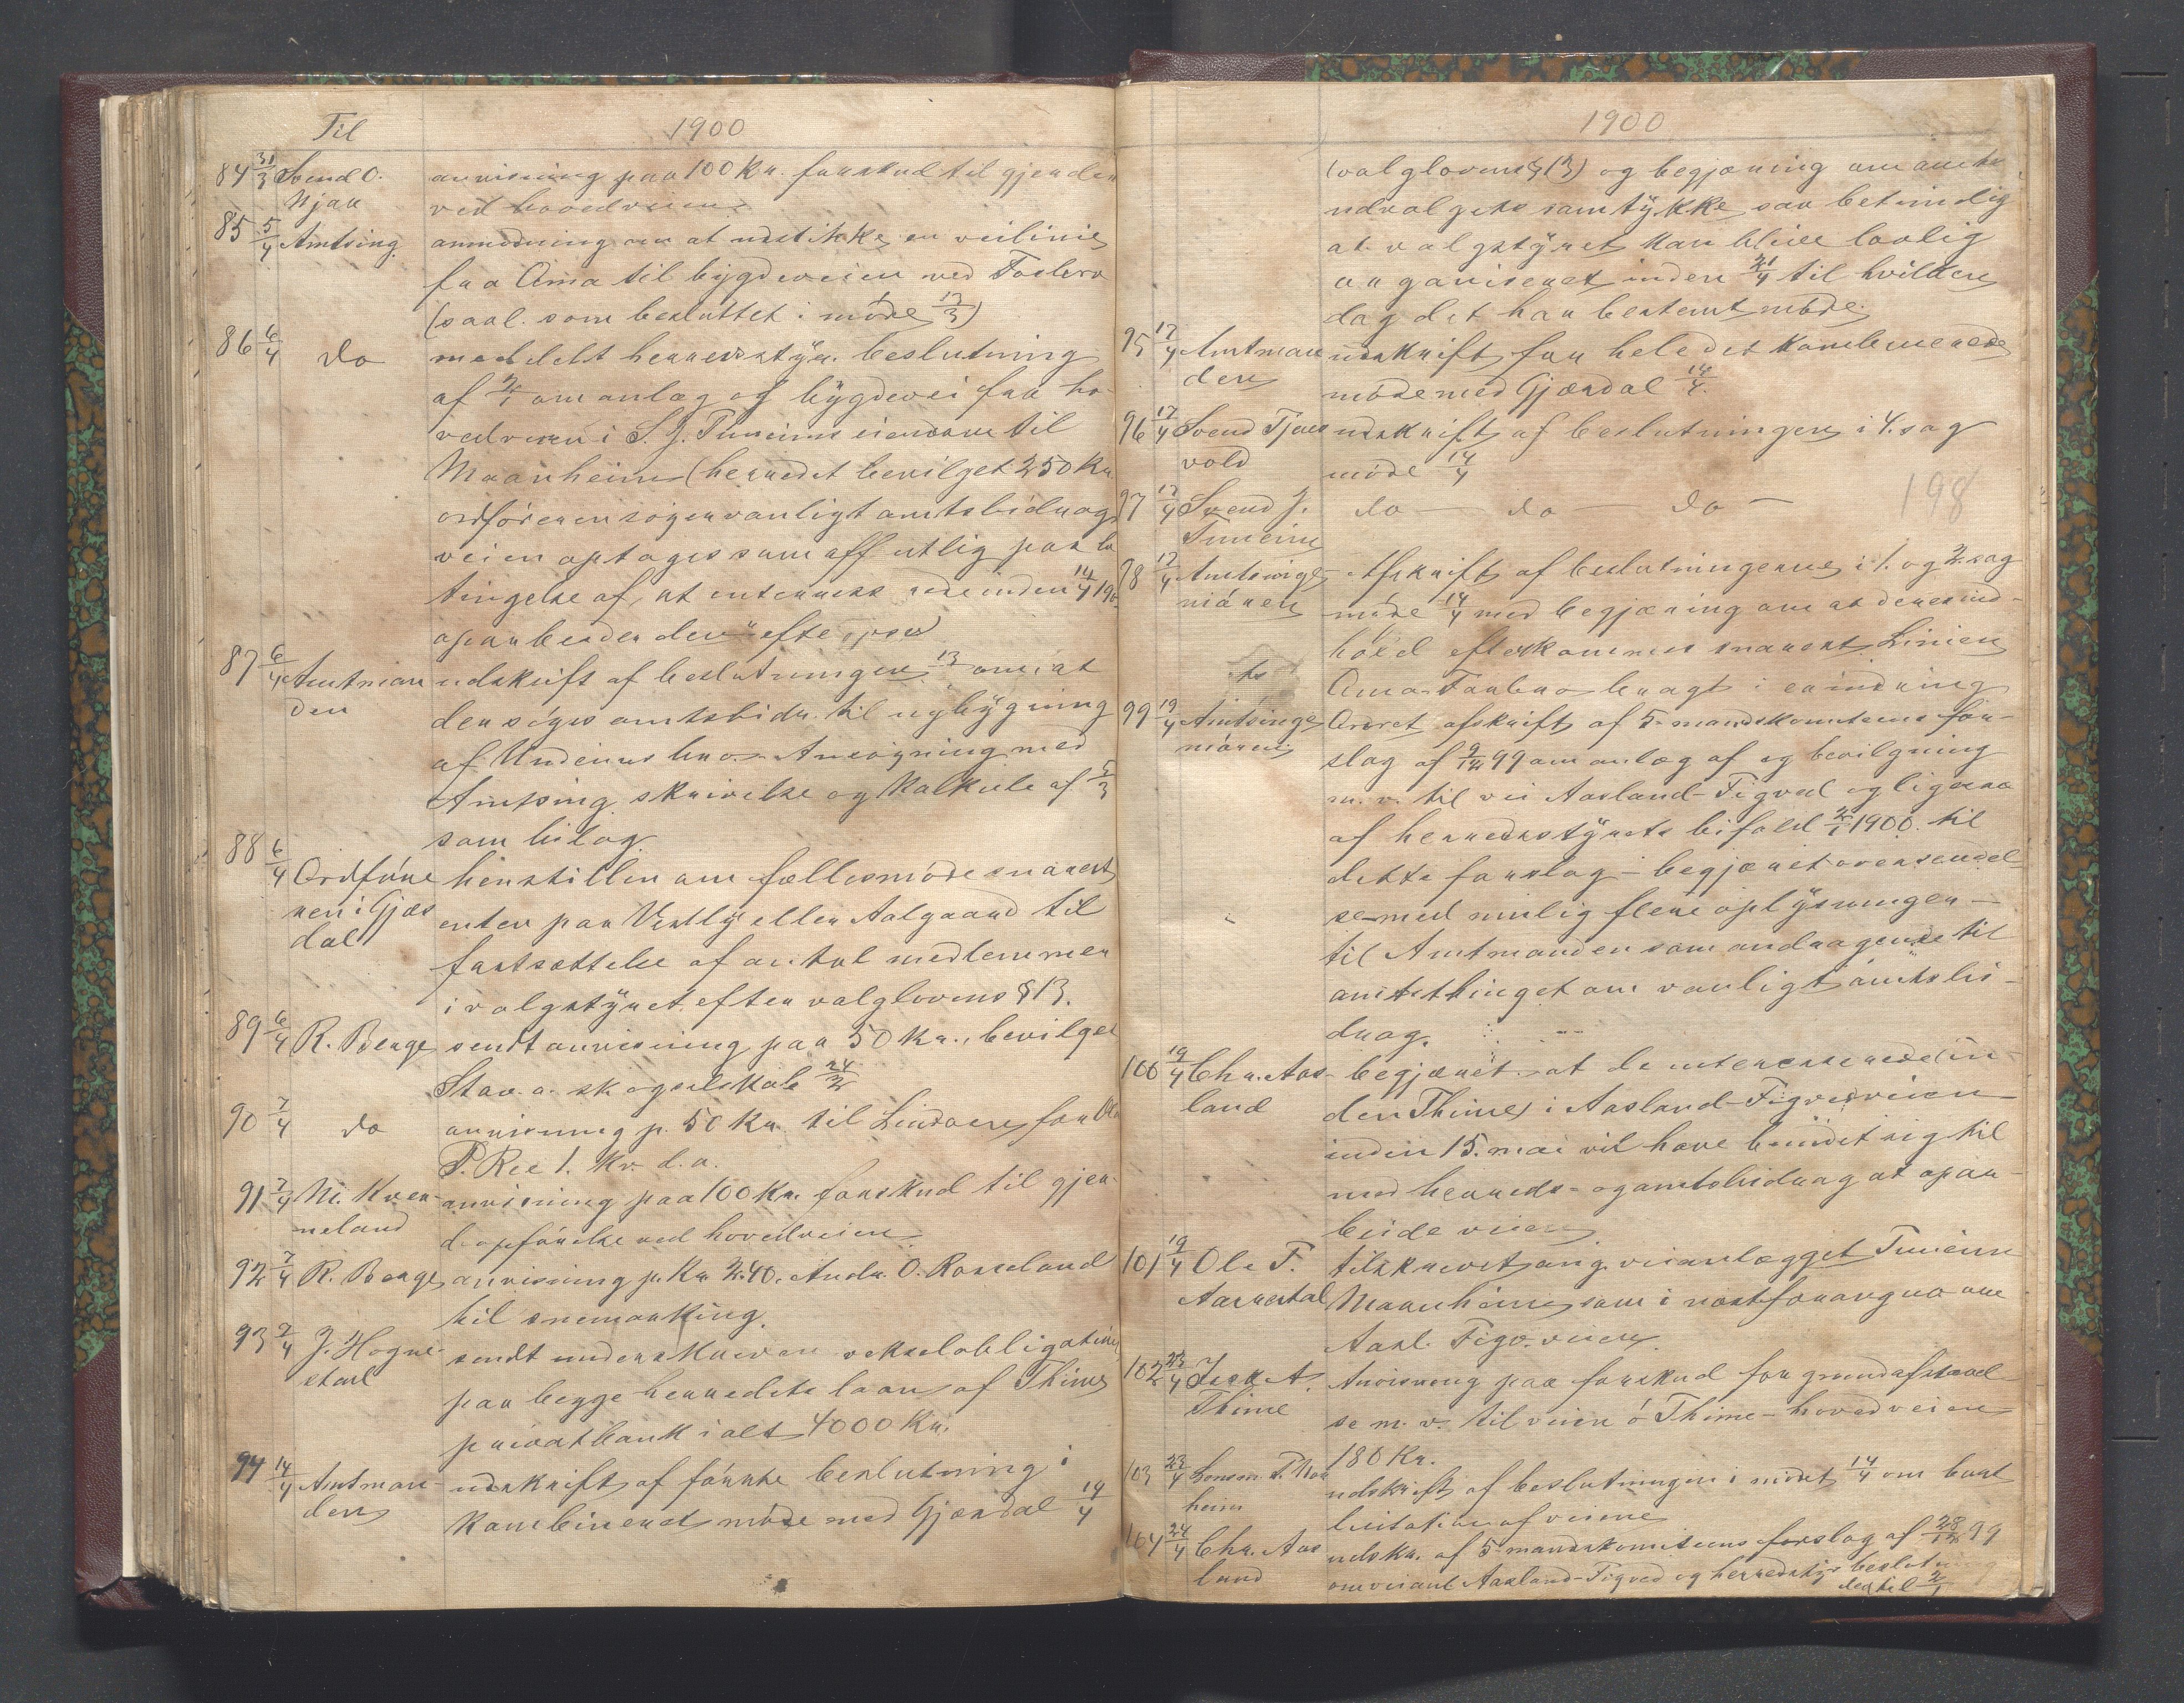 Til 1900
84 31/3 Svend O. anvisning paa 100 Kr. forskud til gjerder
Njaa ved hovedveien.
85 5/4 Amtsing. anmodning om at udstikke en veilinie
fra Ama til bygdeveien ved
(saal. som besluttet i møde 13/3)
86 6/4 do meddelt herredsstyr. beslutning
af 2/1 om anlæg af bygdevei fra ho-
vedveien i S. J. Tuneims eiendom til
Maanheim (herredet bevilget 250 Kr.
ordføreren søger vanligt amtsbidrag
veien optages som offentlig paa be
tingelse af, at interess inden 14/4 190
oparbeider den efter
87 6/4 Amtman udskrift af beslutningen 13/3 om at
den der søges amtsbidr. til nybygning
af Undeims bro. Ansøgning med
Amtsing. skrivelse og Kalkule af 5/3
som bilag.
88 6/4 Ordføre henstiller om fællesmøde snarest
ren i Gjes enten paa Vestly eller Aalgaard til
dal fastsættelse af antal medlemmer
i valgstyret efter valglovens § 13.
89 6/4 R. Berge sendt anvisning paa 50 Kr., bevilget
Stav. a. skogselskab 24/2
90 7/4 do anvisning p. 50 Kr. til Lindaas, for Ole
P. Ree 1. Kv. d. a.
91 7/4 M. Kver- anvisning paa 100 Kr. forskud til gjer-
neland deopførelse ved hovedveien
92 7/4 R. Berge, anvisning p. Kr 2.40, Andr. O. Rosseland
til snemaaking.
93 9/4 J. Hogne- sendt underskreven vekselobligation
stad paa begge herredets laan af Thime
privatbank i alt 4000 Kr.
94 14/4 Amtman- udskrift af første beslutning i
den kombineret møde med Gjesdal 14/4
1900
(valglovens § 13) og begjæring om amts
udvalgets samtykke saa betimelig
at valgstyret kan blive lovlig
organiseret inden 21/4 til hvilken
dag det har bestemt møde.
95 17/4 Amtman udskrift for hele det kombinerede
den møde med Gjesdal 14/4.
96 17/4 Svend Tjaas udskrift af beslutningen i 4. sag
vold møde 14/4
97 17/4 Svend J. do — do — do — 198
Tuneim
98 17/4 Amtsinge- Afskrift af beslutningerne i 1. og 2. sag
niøren møde 14/4 med begjæring om at deres ind-
hold efterkommes snarest. Linien
Ama- bragt i erindring
99 19/4 Amtsinge Oversendt afskrift af 5-mandskomiteens for-
niøren slag af 9/12 99 om anlæg af og bevilgning
m. v. til vei Aasland-Figved og ligesaa
af herredsstyrets bifald 2/1 1900 til
dette forslag – begjæret oversendel
se med mulig flere oplysninger —
til Amtmanden som andragende til
amtsthinget om vanligt amtsbi-
drag.
100 19/4 Chr. Aas- begjæret at de interesserede in-
land den Thime i Aasland-Figvedveien
inden 15. mai vil have bundet sig til
med herreds- og amtsbidrag at opar-
beide veien
101 19/4 Ole T. tilskrevet ang. veianlægget Tuneim
Aarrestad Maanheim, som i næstforangaa om
Aasl. Figv. veien.
102 23/4 A. Anvisning paa forskud for grundafstaael-
Thime se m. v. til veien ó Thime-hovedveien
180 Kr.
103 23/4 Lensm. udskrift af beslutningen i mødet 14/4 om bort
heim licitation af veiene
104 24/4 Chr. Aas udskr. af 5-mandskomiteens forslag af 28/12 99
land om veianl. Aasland-Figved og herredsstyr beslutning
dertil 2/1